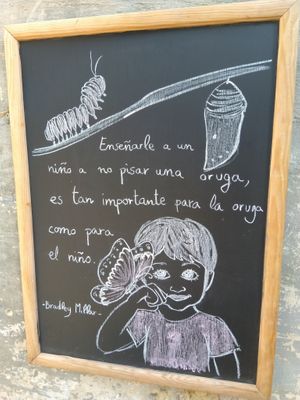 Enseñarle a un
niño a no pisar una oruga,
es tan importante para la oruga
como para
el niño.
-Bradley Miller-